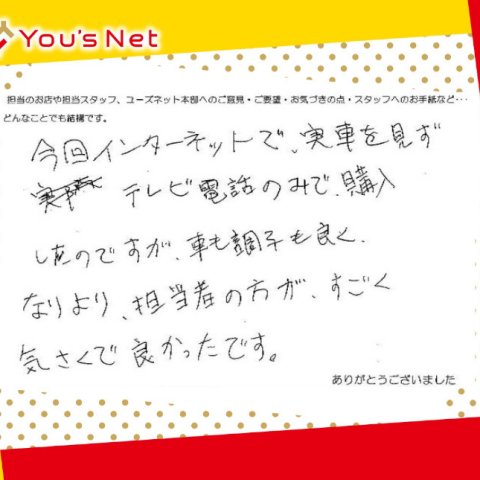 You's Net
担当のお店や担当スタッフ、ユーズネット本部へのご意見・ご要望・お気づきの点・スタッフへのお手紙など・・・
どんなことでも結構です。
今回インターネットで、実車を見ず
テレビ電話のみで、購入
したのですが、車も調子も良く、
なりより、担当者の方が、すごく
気さくで良かったです。
ありがとうございました